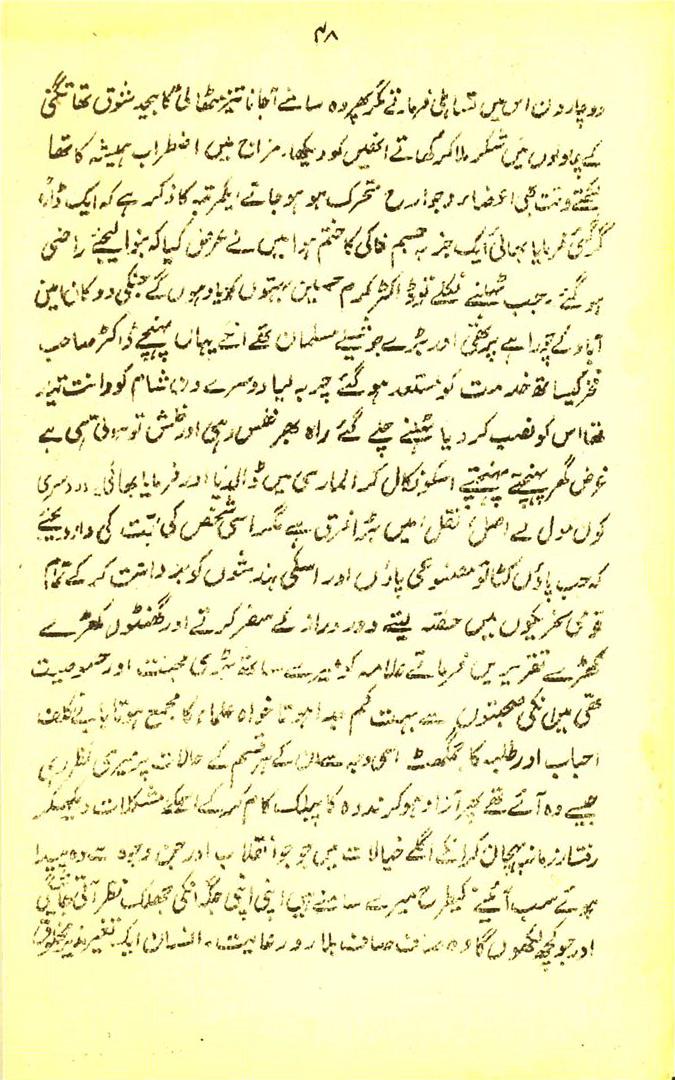 ۴۸
دو چار دن اس میں تساہلی فرماتے مگر پھر وہ سامنے آجاتا تیز مٹھائی کا بیحد شوق تھا
کے چاولوں میں شکر ملا کر کھاتے انھیں کو دیکھا۔ مزاج میں اضطراب ہمیشہ کا تھا
لکھتے وقت بھی اعضاء و جوارح متحرک ہو ہو جاتے ایکمرتبہ کا ذکر ہے کہ ایک ڈاڑھ
گرگئی فرمایا بھائی ایک جز جسم خاکی کا ختم ہوا میں نے عرض کیا کہ بنوا لیجئے راضی
ہو گئے۔ جب ٹہلنے نکلے تو ڈاکٹر کرم حسین بہتوں کو یاد ہوں گے جنکی دوکان امین
آباد کے چوراہے پر تھی اور بڑے جوشیلے مسلمان تھے انکے یہاں پہنچے ڈاکٹر صاحب
فخر کیساتھ خدمت کو مستعد ہو گئے چربہ لیا دوسرے دن شام کو دانت تیار
تھا اس کو نصب کر دیا ٹہلنے چلے گئے راہ بھر خلش تو ہوتی ہی ہے
غرض گھر پہنچتے پہنچتے اسکو نکال کر الماری میں ڈالدیا اور فرمایا بھائی۔ دردسری
کون مول لے اصل و نقل میں بڑا فرق ہے مگر اسی شخص کی ہمت کی داد دیجئے
کہ جب پاؤں کٹا تو مصنوعی پاؤں اور اسکی بندشوں کو برداشت کر کے تمام
قومی تحریکوں میں حصہ لیتے دور دراز کے سفر کرتے اور گھنٹوں کھڑے
کھڑے تقریریں فرماتے علامہ کو میرے ساتھ بڑی محبت اور خصوصیت
تھی میں انکی صحبتوں سے بہت کم جدا ہوتا خواہ علماء کا مجمع ہوتا یا بے تکلف
احباب اور طلبہ کا جمگھٹ اسی وجہ سے ان کے ہر قسم کے حالات پر میری نظر رہی
جیسے وہ آئے تھے پھر آزاد ہو کر ندوہ کا پبلک کام کر کے اسکے مشکلات دیکھکر
رفتار زمانہ پہچان کر انکے اگلے خیالات میں جو جو انقلاب اور جن وجوہ سے وہ پیدا
ہوئے سب آئینے کیطرح میرے سامنے ہیں اپنی اپنی جگہ انکی جھلک نظر آتی جائیگی
اور جو کچھ لکھوں گا وہ صاف صاف بلا رو رعایت۔ انسان ایک تغیر پذیر مخلوق